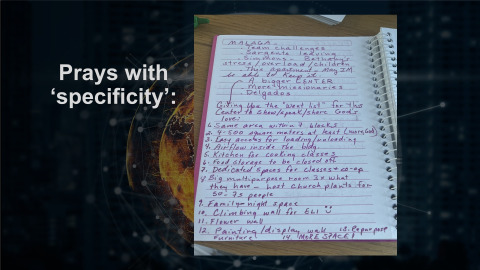 Prays with
'specificity':
MALAGA -
- Team challenges
- Sargents leaving
- Simmons - Bethany's
stress/overload/children
- This apartment - May I M
be able to keep it
A bigger CENTER
More missionaries
Delgados
Giving Upu the "want list" for this
Center to show/speak/share God's
love:
1. Same area within 7 blocks
2. 4-500 square meters at least (more, God)
3. Easy access for loading/unloading
4. Airflow inside the bldg.
5. Kitchen for cooking classes
6. Food storage to be closed off
7. Dedicated spaces for classes + co-op
8. Big multipurpose room 3x what
they have - host church plants for
50-75 people
9. Family night space
10. Climbing wall for Eli
11. Flower wall
12. Painting/display wall 13. Repurpose
furniture 14. MORE SPACE!